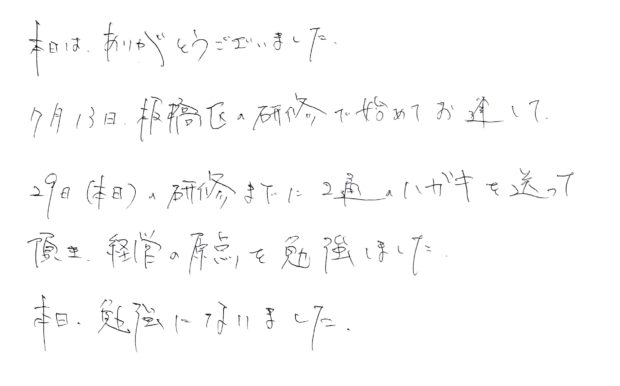 本日は、ありがとうございました。
7月13日、板橋区の研修で始めてお逢して、
29日(本日)の研修までに2通のハガキを送って
頂き、経営の原点を勉強しました。
本日、勉強になりました。